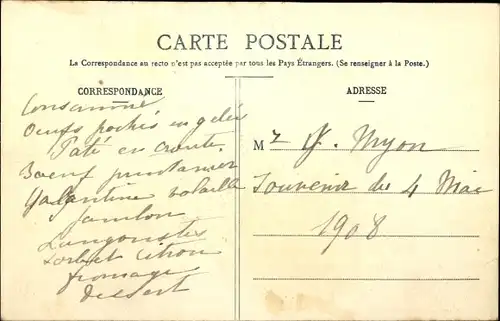 CARTE POSTALE
La Correspondance au recto n'est pas acceptée par tous les Pays Étrangers. (Se renseigner à la Poste.)
CORRESPONDANCE
Consommé
Oeufs pochés en gelée
Paté en croute
Boeuf printanier
Galantine volaille
Jambon
Langoustes
Sorbet citron
fromage
Dessert
ADRESSE
M r Myon
Souvenir du 4 Mai
1908